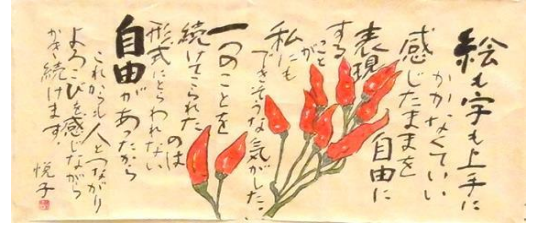 絵も字も上手に
かかなくていい
感じたままを
自由に
表現
する
ことが
私にも
できそうな気がした。
一つのことを
続けてこられた
のは
形式にとらわれない
自由があったから
これからも人とつながり
よろこびを感じながら
かき続けます。
悦子